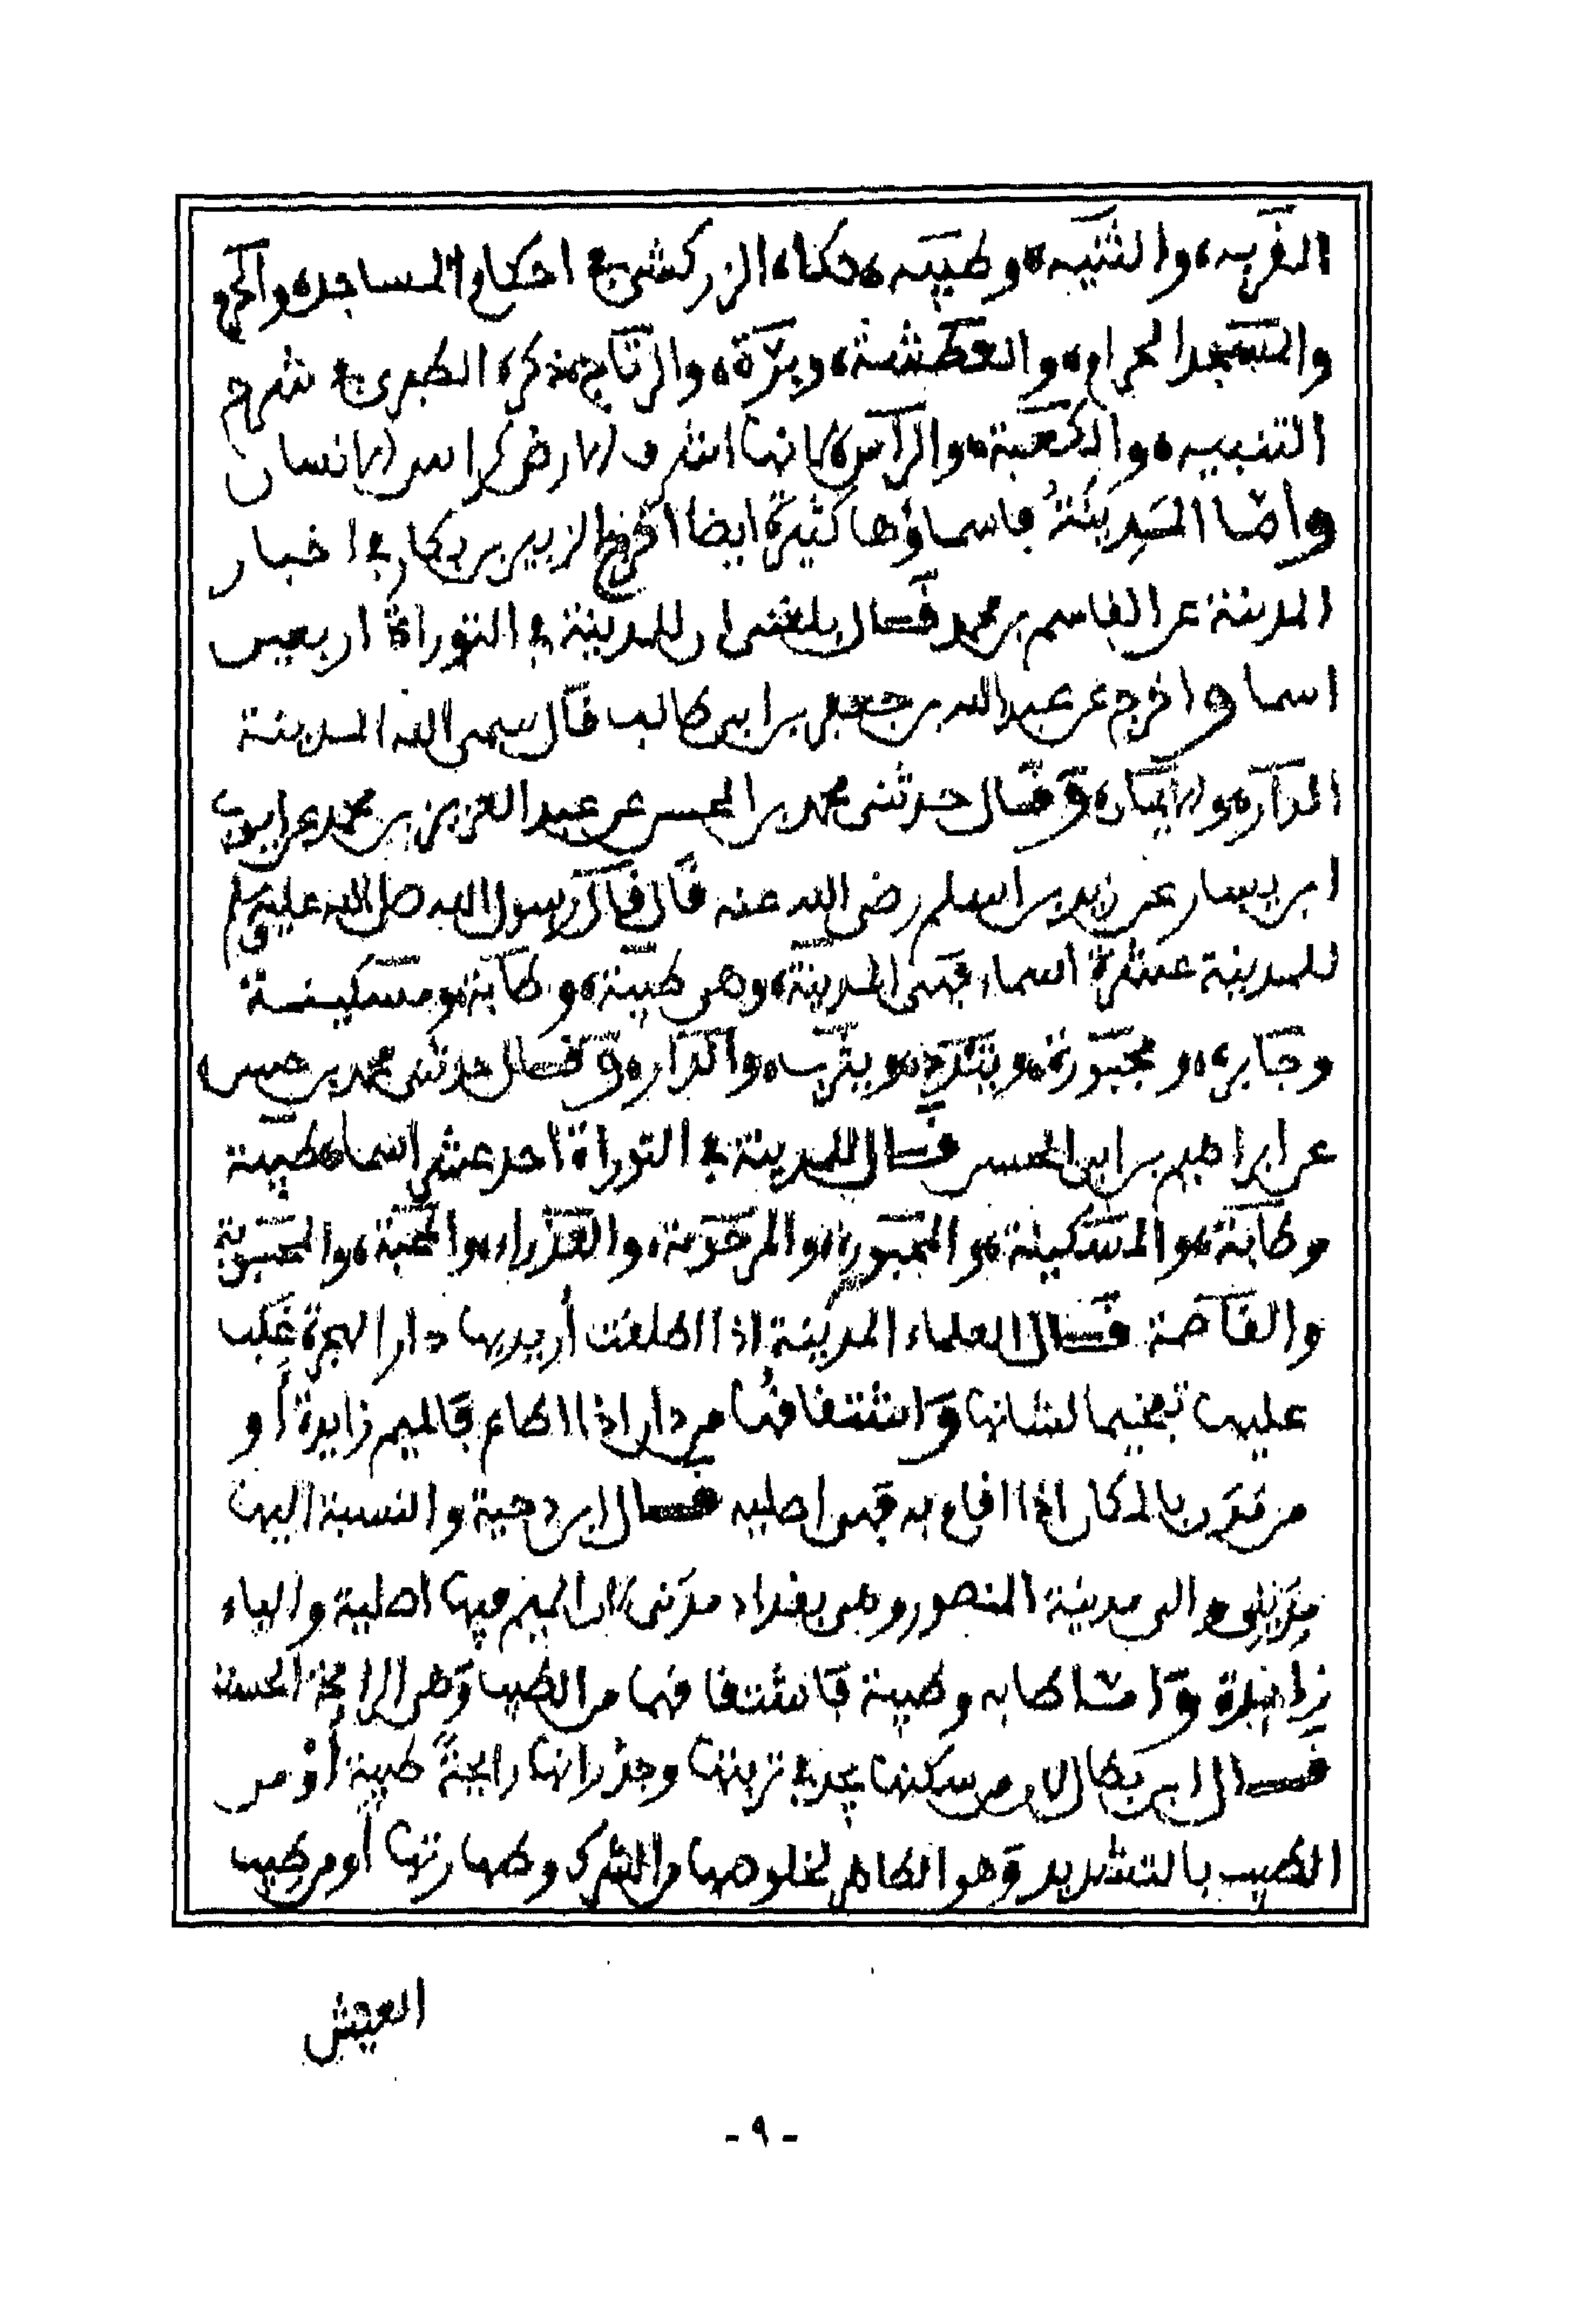 القريه، والثنيه، وطيبه، حكاه الزركشي في احكام المساجد، والحرم
والمسجد الحرام، والعطشة، وبرة، والرتاج، ذكره الطبري في شرح
التنبيه، والكعبة، والرأس، لانها اشرف الارض كراس الانسان
وامّا المدينةُ فاسماؤها كثيرة ايضا اخرج الزبير بن بكار في اخبار
المدينة عن القاسم بن محمد قال بلغني ان للمدينة في التوراة اربعين
اسما واخرج عن عبد الله بن جعفر بن ابي طالب قال سمى الله المدينة
الدار، والايمان، وقال حدثني محمد بن الحسن عن عبد العزيز بن محمد عن ابي
ابن يسار عن زيد بن اسلم رضي الله عنه قال قال رسول الله صلى الله عليه وسلم
للمدينة عشرة اسماء فهي المدينة، وهي طيبة، وطابة، ومسكينة
وجابره، و مجبورة، ويندد، ويثرب، والدار، وقال حدثني محمد بن حسن
عن ابراهيم بن ابي الحسن قال للمدينة في التوراة احد عشر اسما، طيبة
وطابة، والمسكينة، والمجبورة، والمرحومة، والعذراء، والمحبة، والمحبوبة
والقاصمة قال العلماء المدينة اذا اطلقت أريد بها دار الهجرة غلب
عليها تفخيما لشانها واشتقاقُها من دان اذا اطاع فالميم زايدة أو
من مَدَن بالمكان اذا اقام به فهي اصليه قال ابن دحية والنسبة اليها
مَدِيني والى مدينة المنصور وهي بغداد مدَني لان الميم فيها اصلية والياء
زائدة وامّا طابه وطيبة فاشتقاقهما من الطيب وهي الرايحة الحسنة
قال ابن بطال لان من سكنها يجد في تربتها وجدرانها رايحةً طيبة أوْ من
الطيب بالتشديد وهو الطاهر لخلوصها من الشرك وطهارتها أو من طيب
العيش
- ٩ -